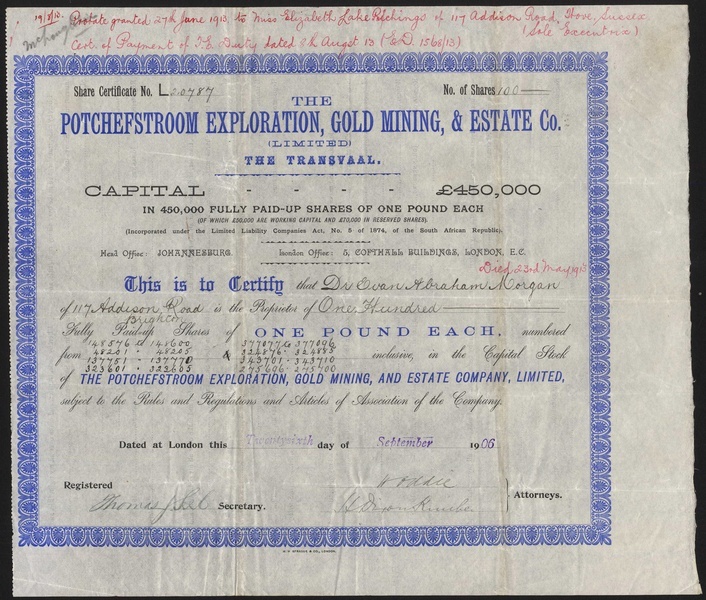 19/8/13. Probate granted 27th June 1913, to Miss Elizabeth Lake of 117 Addison Road, Hove, Sussex.
(Sole Executrix)
Cert. of Payment of Duty dated 8th Augst 13
Share Certificate No. L20787 No. of Shares 100
THE
POTCHEFSTROOM EXPLORATION, GOLD MINING, & ESTATE Co.
(LIMITED)
THE TRANSVAAL.
CAPITAL - - - - £450,000
IN 450,000 FULLY PAID-UP SHARES OF ONE POUND EACH
(OF WHICH £50,000 ARE WORKING CAPITAL AND £70,000 IN RESERVED SHARES).
(Incorporated under the Limited Liability Companies Act, No. 5 of 1874, of the South African Republic).
Head Office: JOHANNESBURG. London Office: 5, COPTHALL BUILDINGS, LONDON, E.C.
Died 23rd May 1913
This is to Certify that Dr Evan Abraham Morgan
of 117 Addison Road is the Proprietor of One Hundred
Brighton
Fully Paid-up Shares of ONE POUND EACH, numbered
148576 148600 377077 377096
from 48201 48205 & 324876 324885 inclusive, in the Capital Stock
137751 137770 343701 343710
323601 323605 275696 275700
of THE POTCHEFSTROOM EXPLORATION, GOLD MINING, AND ESTATE COMPANY, LIMITED,
subject to the Rules and Regulations and Articles of Association of the Company.
Dated at London this Twentysixth day of September 1906
Registered
Thomas Secretary.
Attorneys.